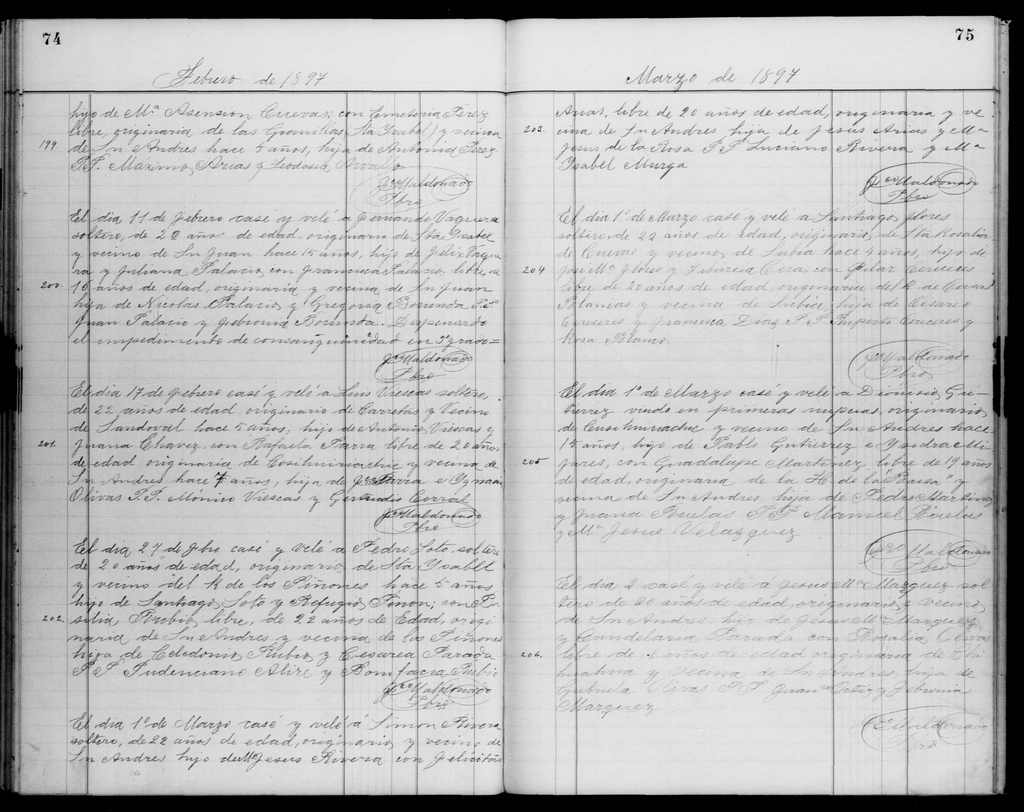 74
Febrero de 1897
hijo de Mª Asension Cuevas; con Emeteria Perez
libre, originaria de las (Sta Ysabel) y vecina
199 de Sn Andres hace 5 años, hija de Antonia Perez
P.P. Maximo Arias y Teodosia
Jº Maldonado
Pbro
El dia 11 de Febrero casé y velé a Fernando Vaquera
soltero, de 20 años de edad originario de Sta Ysabel
y vecino de Sn Juan hace 15 años, hijo de Felix Vaque
ra y Juliana Palacio, con Francisca Palacio, libre, de
200. 15 años de edad, originaria y vecina de Sn Juan
hija de Nicolas Palacio y Gregoria Bosunda P.P.
Juan Palacio y Febronia Bosunda. Dispensado
el impedimento de consanguinidad en 3º grado=
Jº Maldonado
Pbro
El dia 17 de Febrero casé y velé a Luis Viescas soltero,
de 22 años de edad originario de Carretas y vecino
de Sandoval hace 5 años, hijo de Antonio Viescas y
201. Juana Chavez con Rafaela Parra libre de 20 años
de edad originaria de Cosihuiriachic y vecina de
Sn Andres hace 7 años, hija de Parra e
Olivas P.P. Monico Viescas y Gertrudis Corral
Jº Maldonado
Pbro
El dia 27 de Fbro casé y velé a Pedro Soto, soltero
de 20 años de edad, originario de Sta Ysabel
y vecino del R. de los Piñones hace 5 años
hijo de Santiago Soto y Refugio Pinon; con Ro-
202. salia Rubio, libre, de 22 años de Edad, origi
naria de Sn Andres y vecina de los Piñones
hija de Celedonio Rubio y Cesarea Parada
P.P. Pudenciano Alire y Bonifacia Rubio
Jº Maldonado
Pbro
El dia 1º de Marzo casé y velé á Simon Rivera
soltero, de 22 años de edad, originario y vecino de
Sn Andres hijo de Mª Jesus Rivera con Felicitas
75
Marzo de 1897
Arias, libre de 20 años de edad, originaria y ve
203. cina de Sn Andres hija de Jesus Arias y Mª
Jesus de la Rosa P.P. Luciano Rivera y Mª
Ysabel Murga
Jº Maldonado
Pbro
El dia 1º de Marzo casé y velé a Santiago Flores
soltero de 22 años de edad, originario de Sta Rosalia
de Cuevas y vecino de Lubia hace 4 años, hijo de
204 José Mª Flores y Tiburcia Coca, con Pilar Caraveo
libre de 20 años de edad originaria del R. de Cuevas
Blancas y vecina de Lubia, hija de Cesario
y Francisca Dias P.P. Ruperto y
Rosa Blanco
Jº Maldonado
Pbro
El dia 1º de Marzo casé y velé a Dionisio Gu-
tierrez viudo en primeras nupcias, originario
de Cusihuiriachic y vecino de Sn Andres hace
15 años, hijo de Pablo Gutierrez e Ysidra Mi-
205 jares, con Guadalupe Martinez, libre de 19 años
de edad, originaria de la Hª de la "Presa" y
vecina de Sn Andres hija de Pedro Martinez
y Juana Ruelas P.P. Manuel Ruelas
y Mª Jesus Velazquez
Maldonado
Pbro
El dia 2 casé y velé a Jesus Mª Marquez sol
tero de 20 años de edad, originario y vecino
de Sn Andres, hijo de Jesus Mª Marquez
y Candelaria Parada con Rosalia Olivas
206. libre de años de edad originaria de Chi
huahua y vecina de Sn Andres, hija de
Gabriela Olivas P.P. Juan Ortiz y Febronia
Marquez
Maldonado
Pbro